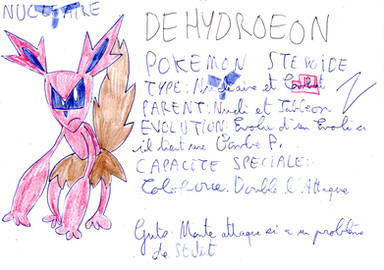 NUCLEAIRE
DEHYDROEON
POKEMON STEROIDE
TYPE: Nucléaire et Combat
PARENT: Nucli et
EVOLUTION: Evolue d'un Evoli si
il tient une P.
CAPACITE SPECIALE:
Coloforce: Double l'Attaque
Guts: Monte attaque si a un problème
de Statut